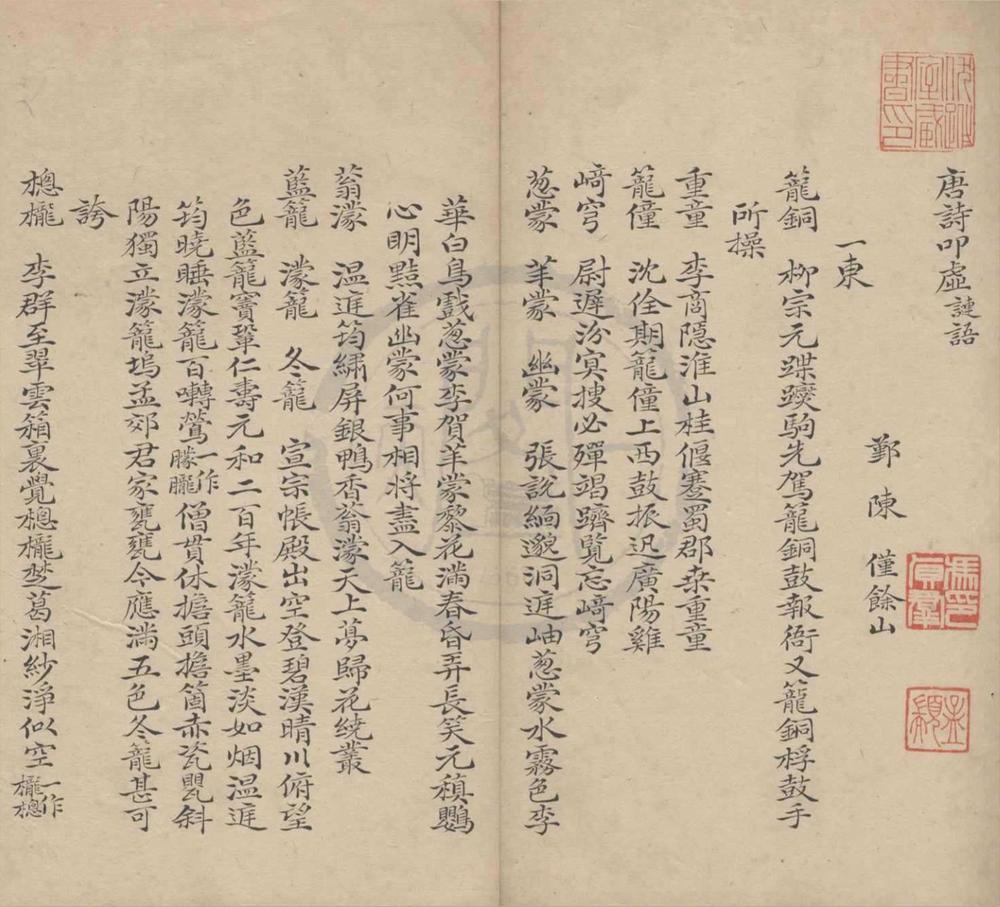 唐詩叩虛謰語
鄞 陳 僅餘山
一東
籠銅 柳宗元蹀躞駒先駕籠銅鼓報衙又籠銅桴鼓手
所操
重童 李商隱淮山桂偃蹇蜀郡桑重童
籠僮 沈佺期籠僮上西鼓振迅廣陽雞
崎穹 尉遲汾冥搜必殫竭躋覽忘崎穹
蔥蒙 芊蒙 幽蒙 張說緬邈洞庭岫蔥蒙水霧色李
華白鳥戲蔥蒙李賀芊蒙黎花滿春昏弄長笑元稹鸚
心明黠雀幽蒙何事相將盡入籠
蓊濛 溫庭筠繡屏銀鴨香蓊濛天上夢歸花繞叢
藍籠 濛籠 冬籠 宣宗帳殿出空登碧漢晴川俯望
色藍籠竇鞏仁壽元和二百年濛籠水墨淡如烟溫庭
筠曉睡濛籠百囀鶯一作朦朧僧貫休擔頭擔箇赤瓷甖斜
陽獨立濛籠塢孟郊君家甕甕今應滿五色冬籠甚可
誇
楤櫳 李群玉翠雲箱裏疊楤櫳楚葛湘紗淨似空一作櫳楤